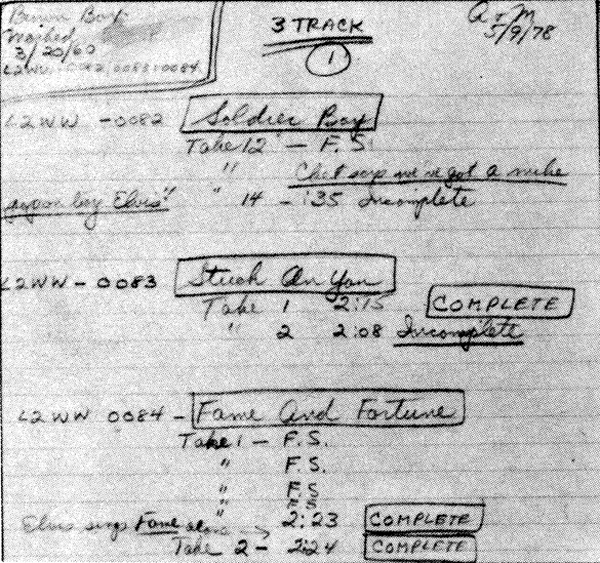 Brown Box
Marked
3/20/60
L2WW-0082/0083/0084
3 TRACK
1
Q & M
5/9/78
L2WW -0082 Soldier Boy
Take 12 - F.S.
" Chet says we've got a mike
open by Elvis"
" 14 - :35 Incomplete
L2WW - 0083 Stuck On You
Take 1 2:15 COMPLETE
" 2 2:08 Incomplete
L2WW 0084 - Fame And Fortune
Take 1 - F.S.
" F.S.
" F.S
" F.S
Elvis sings Fame alone → " 2:23 COMPLETE
Take 2 - 2:24 COMPLETE